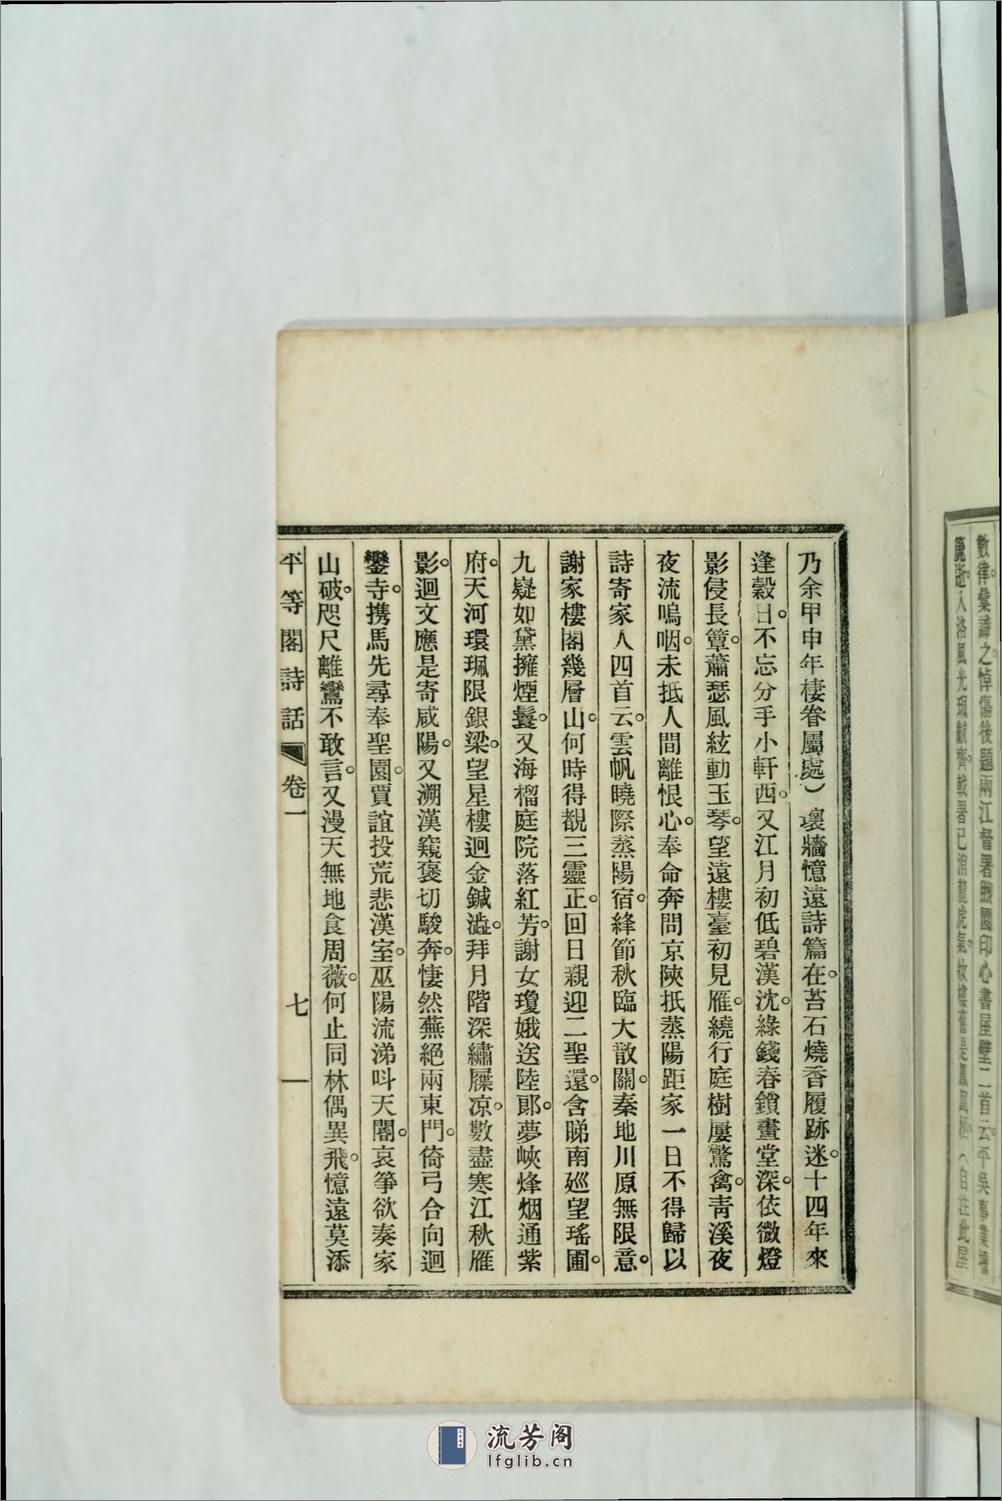 數律彙諱之悼傷後題兩江督署煦園印心書屋壁二首云平吳事業
乃余甲申年棲眷屬處）壞牆憶遠詩篇在。苔石燒香履跡迷。十四年來
逢穀日。不忘分手小軒西。又江月初低碧漢沈。綠錢春鎖畫堂深。依微燈
影侵長簟。蕭瑟風絃動玉琴。望遠樓臺初見雁。繞行庭樹屢驚禽。青溪夜
夜流嗚咽。未抵人間離恨心。奉命奔問京陝抵蒸陽距家一日不得歸以
詩寄家人四首云。雲帆曉際蒸陽宿。絳節秋臨大散關。秦地川原無限意。
謝家樓閣幾層山。何時得覩三靈正。回日親迎二聖還。含睇南巡望瑤圃。
九疑如黛擁煙鬟。又海榴庭院落紅芳。謝女瓊娥送陸郎。夢峽烽烟通紫
府。天河環珮限銀梁。望星樓迥金鍼澁。拜月階深繡屧凉。數盡寒江秋雁
影。迴文應是寄咸陽。又溯漢窺褒切駿奔。悽然蕪絕兩東門。倚弓合向迴
鑾寺。携馬先尋奉聖園。賈誼投荒悲漢室。巫陽流涕叫天閽。哀箏欲奏家
山破。咫尺離鸞不敢言。又漫天無地食周薇。何止同林偶異飛。憶遠莫添
平等閣詩話 卷一 七